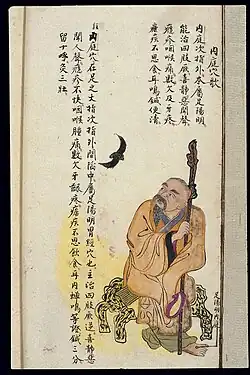 内庭穴歌
内庭次指外本屬足陽明
能治四肢厥喜靜惡聞聲
癮疹咽喉痛數欠及牙疼
瘧疾不思食耳鳴鍼便清
內庭穴在足之大指次指外間陷中屬足陽明胃經穴也主治四肢厥逆喜靜惡
聞人聲癮疹不快咽喉腫痛數欠牙齦疼瘧疾不思飲食耳內蟬鳴等證鍼三分
留十呼灸三壯
足陽明內庭